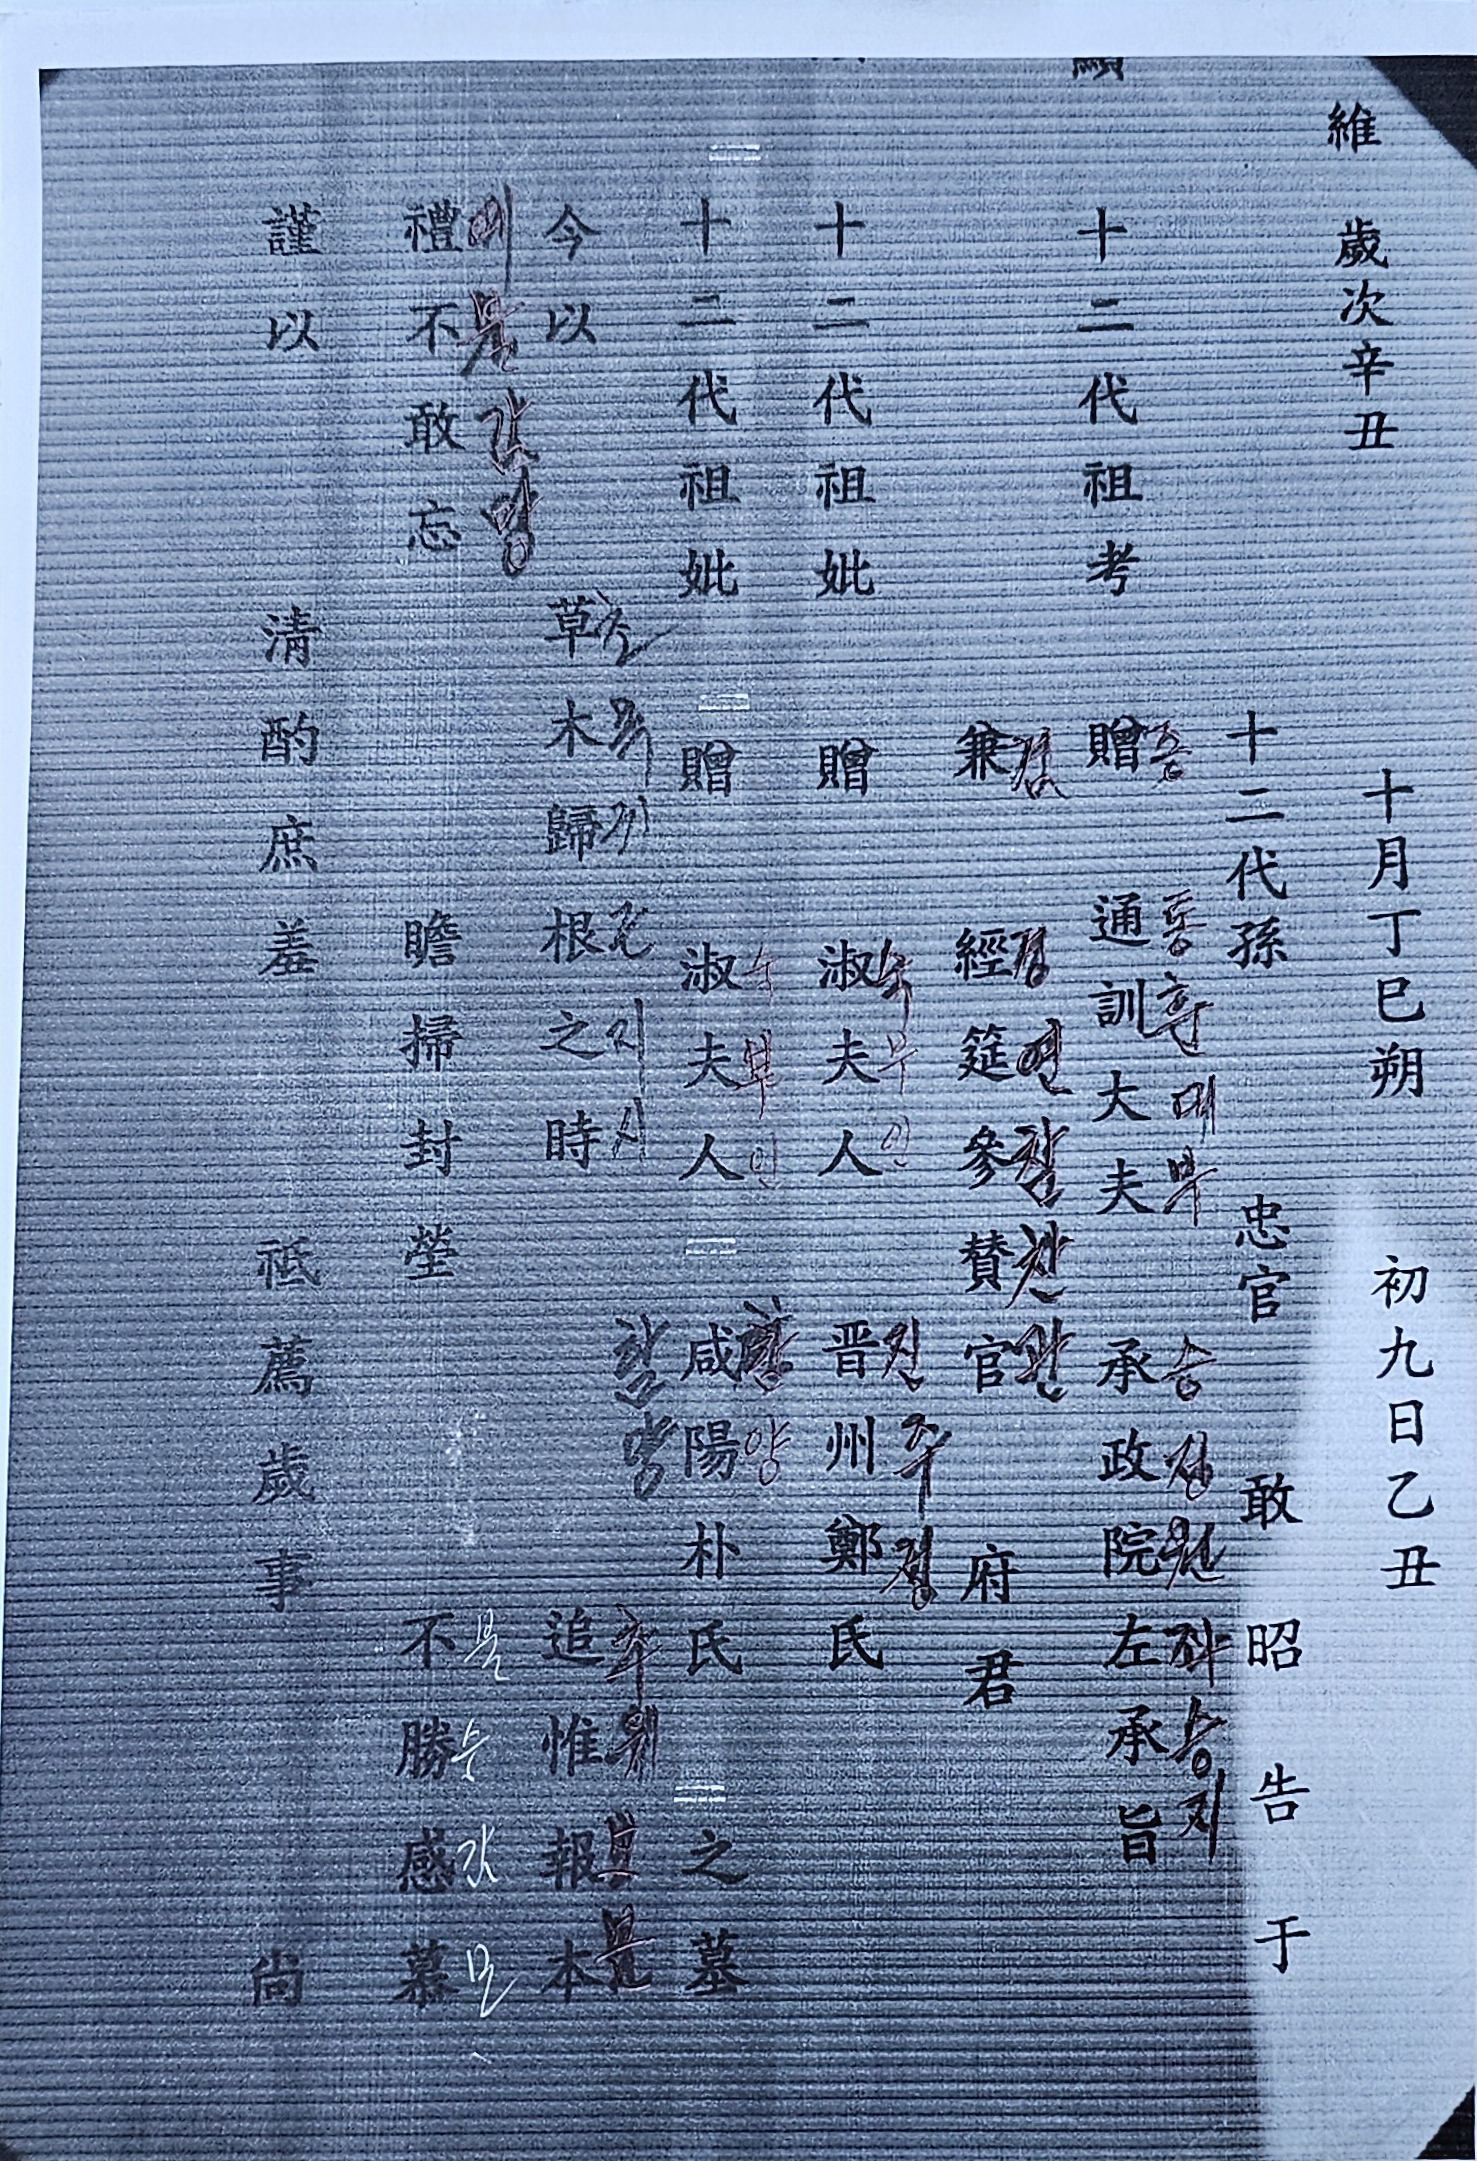 維 歲次辛丑 十月丁巳朔 初九日乙丑
十二代孫 忠官 敢昭告于
十二代祖考 贈 通訓大夫 承政院左承旨
증 통훈대부 승정원좌승지
兼 經筵參贊官 府君
겸 경연참찬관
十二代祖妣 贈 淑夫人 晋州鄭氏
숙부인 진주정
十二代祖妣 贈 淑夫人 咸陽朴氏 之墓
숙부인 함양
함양
今以 草木歸根之時 追惟報本
초목귀근지시 추위보본
禮不敢忘 瞻掃封塋 不勝感慕
예불감망 불승감모
謹以 清酌庶羞 祗薦歲事 尙